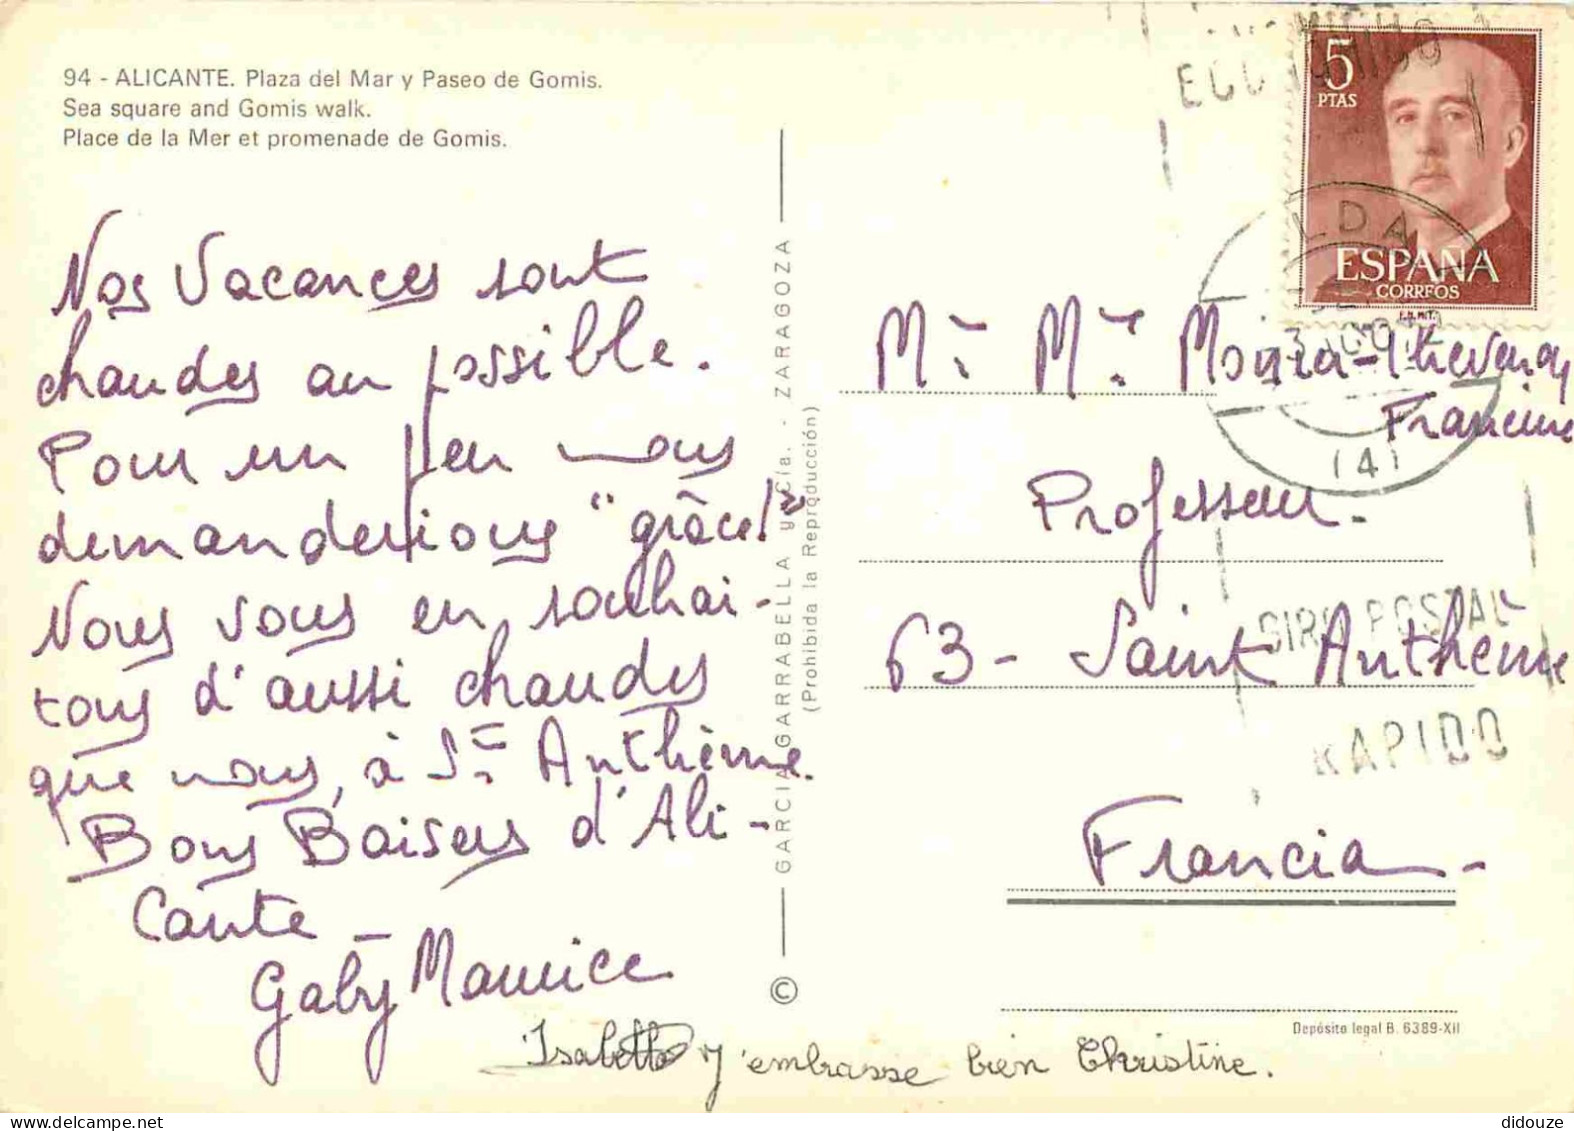 94 - ALICANTE. Plaza del Mar y Paseo de Gomis.
Sea square and Gomis walk.
Place de la Mer et promenade de Gomis.
Nos Vacances sont
chaudes au possible.
Pour un peu nous
demanderions "grâce!"
Nous vous en souhai-
tons d'aussi chaudes
que nous, à St Anthème.
Bons Baisers d'Ali-
cante -
Gaby Maurice
Isabelle
J'embrasse bien Christine.
GARCIA GARRABELLA y Cía. - ZARAGOZA
(Prohibida la Reproducción)
©
ECONOMICO
5
PTAS
ESPAÑA
CORREOS
F.N.M.T.
LDA
(4)
GIRO POSTAL
RAPIDO
Mr. Me.
Francine
Professeur.
63 - Saint Anthème
Francia -
Depósito legal B. 6389-XII
didouze